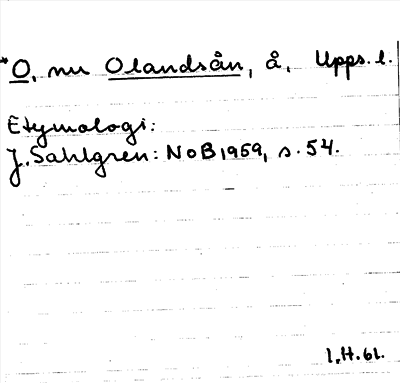 *O, nu Olandsån, å, Upps. l.
Etymologi:
J. Sahlgren: NoB 1959, s. 54.
I.H. 61.